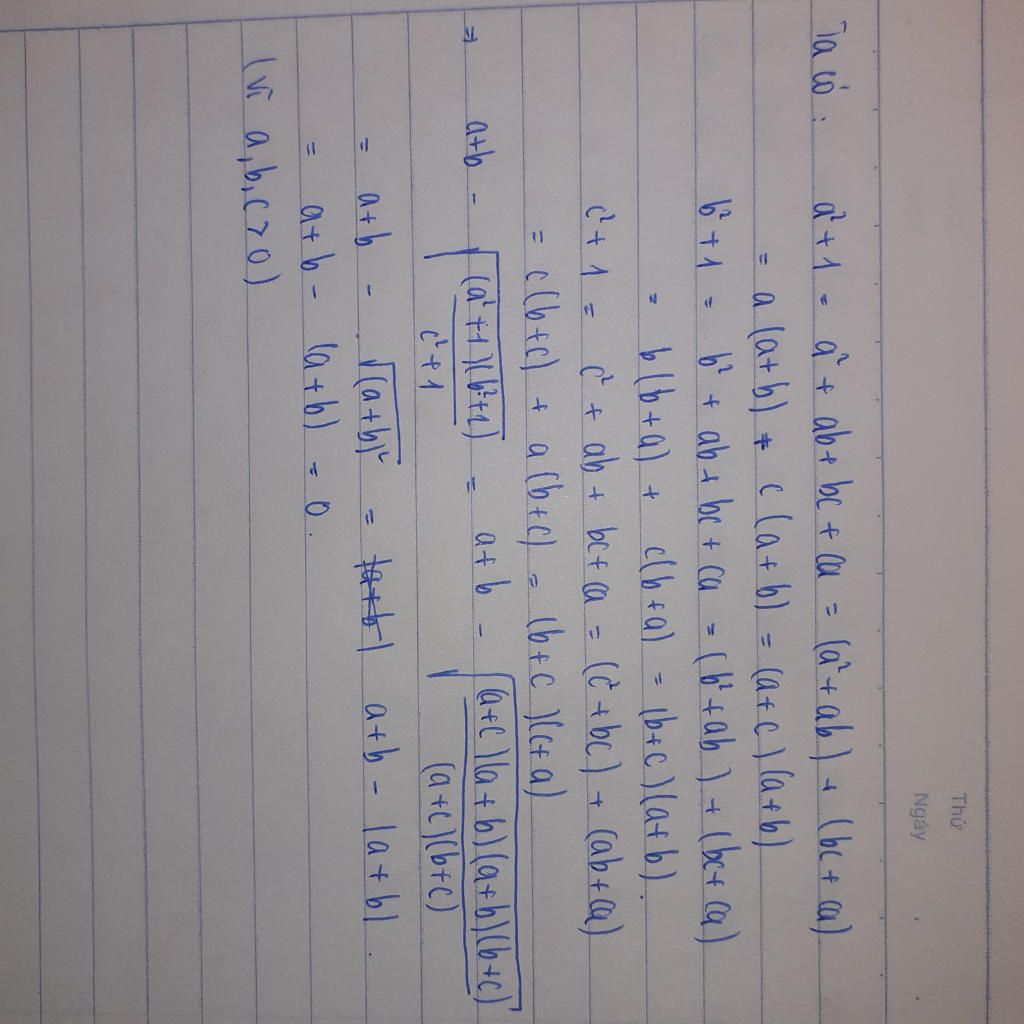 Thứ
Ngày
Ta có: a² + 1 = a² + ab + bc + ca = (a² + ab) + (bc + ca)
= a(a+b) + c(a+b) = (a+c)(a+b)
b² + 1 = b² + ab + bc + ca = (b² + ab) + (bc + ca)
= b(b+a) + c(b+a) = (b+c)(a+b).
c² + 1 = c² + ab + bc + ca = (c² + bc) + (ab + ca)
= c(b+c) + a(b+c) = (b+c)(c+a)
⇒ a+b - √((a²+1)(b²+1)/(c²+1)) = a+b - √((a+c)(a+b)(a+b)(b+c)/((a+c)(b+c)))
= a+b - √(a+b)² = a+b - |a+b|
= a+b - (a+b) = 0.
(vì a,b,c > 0)